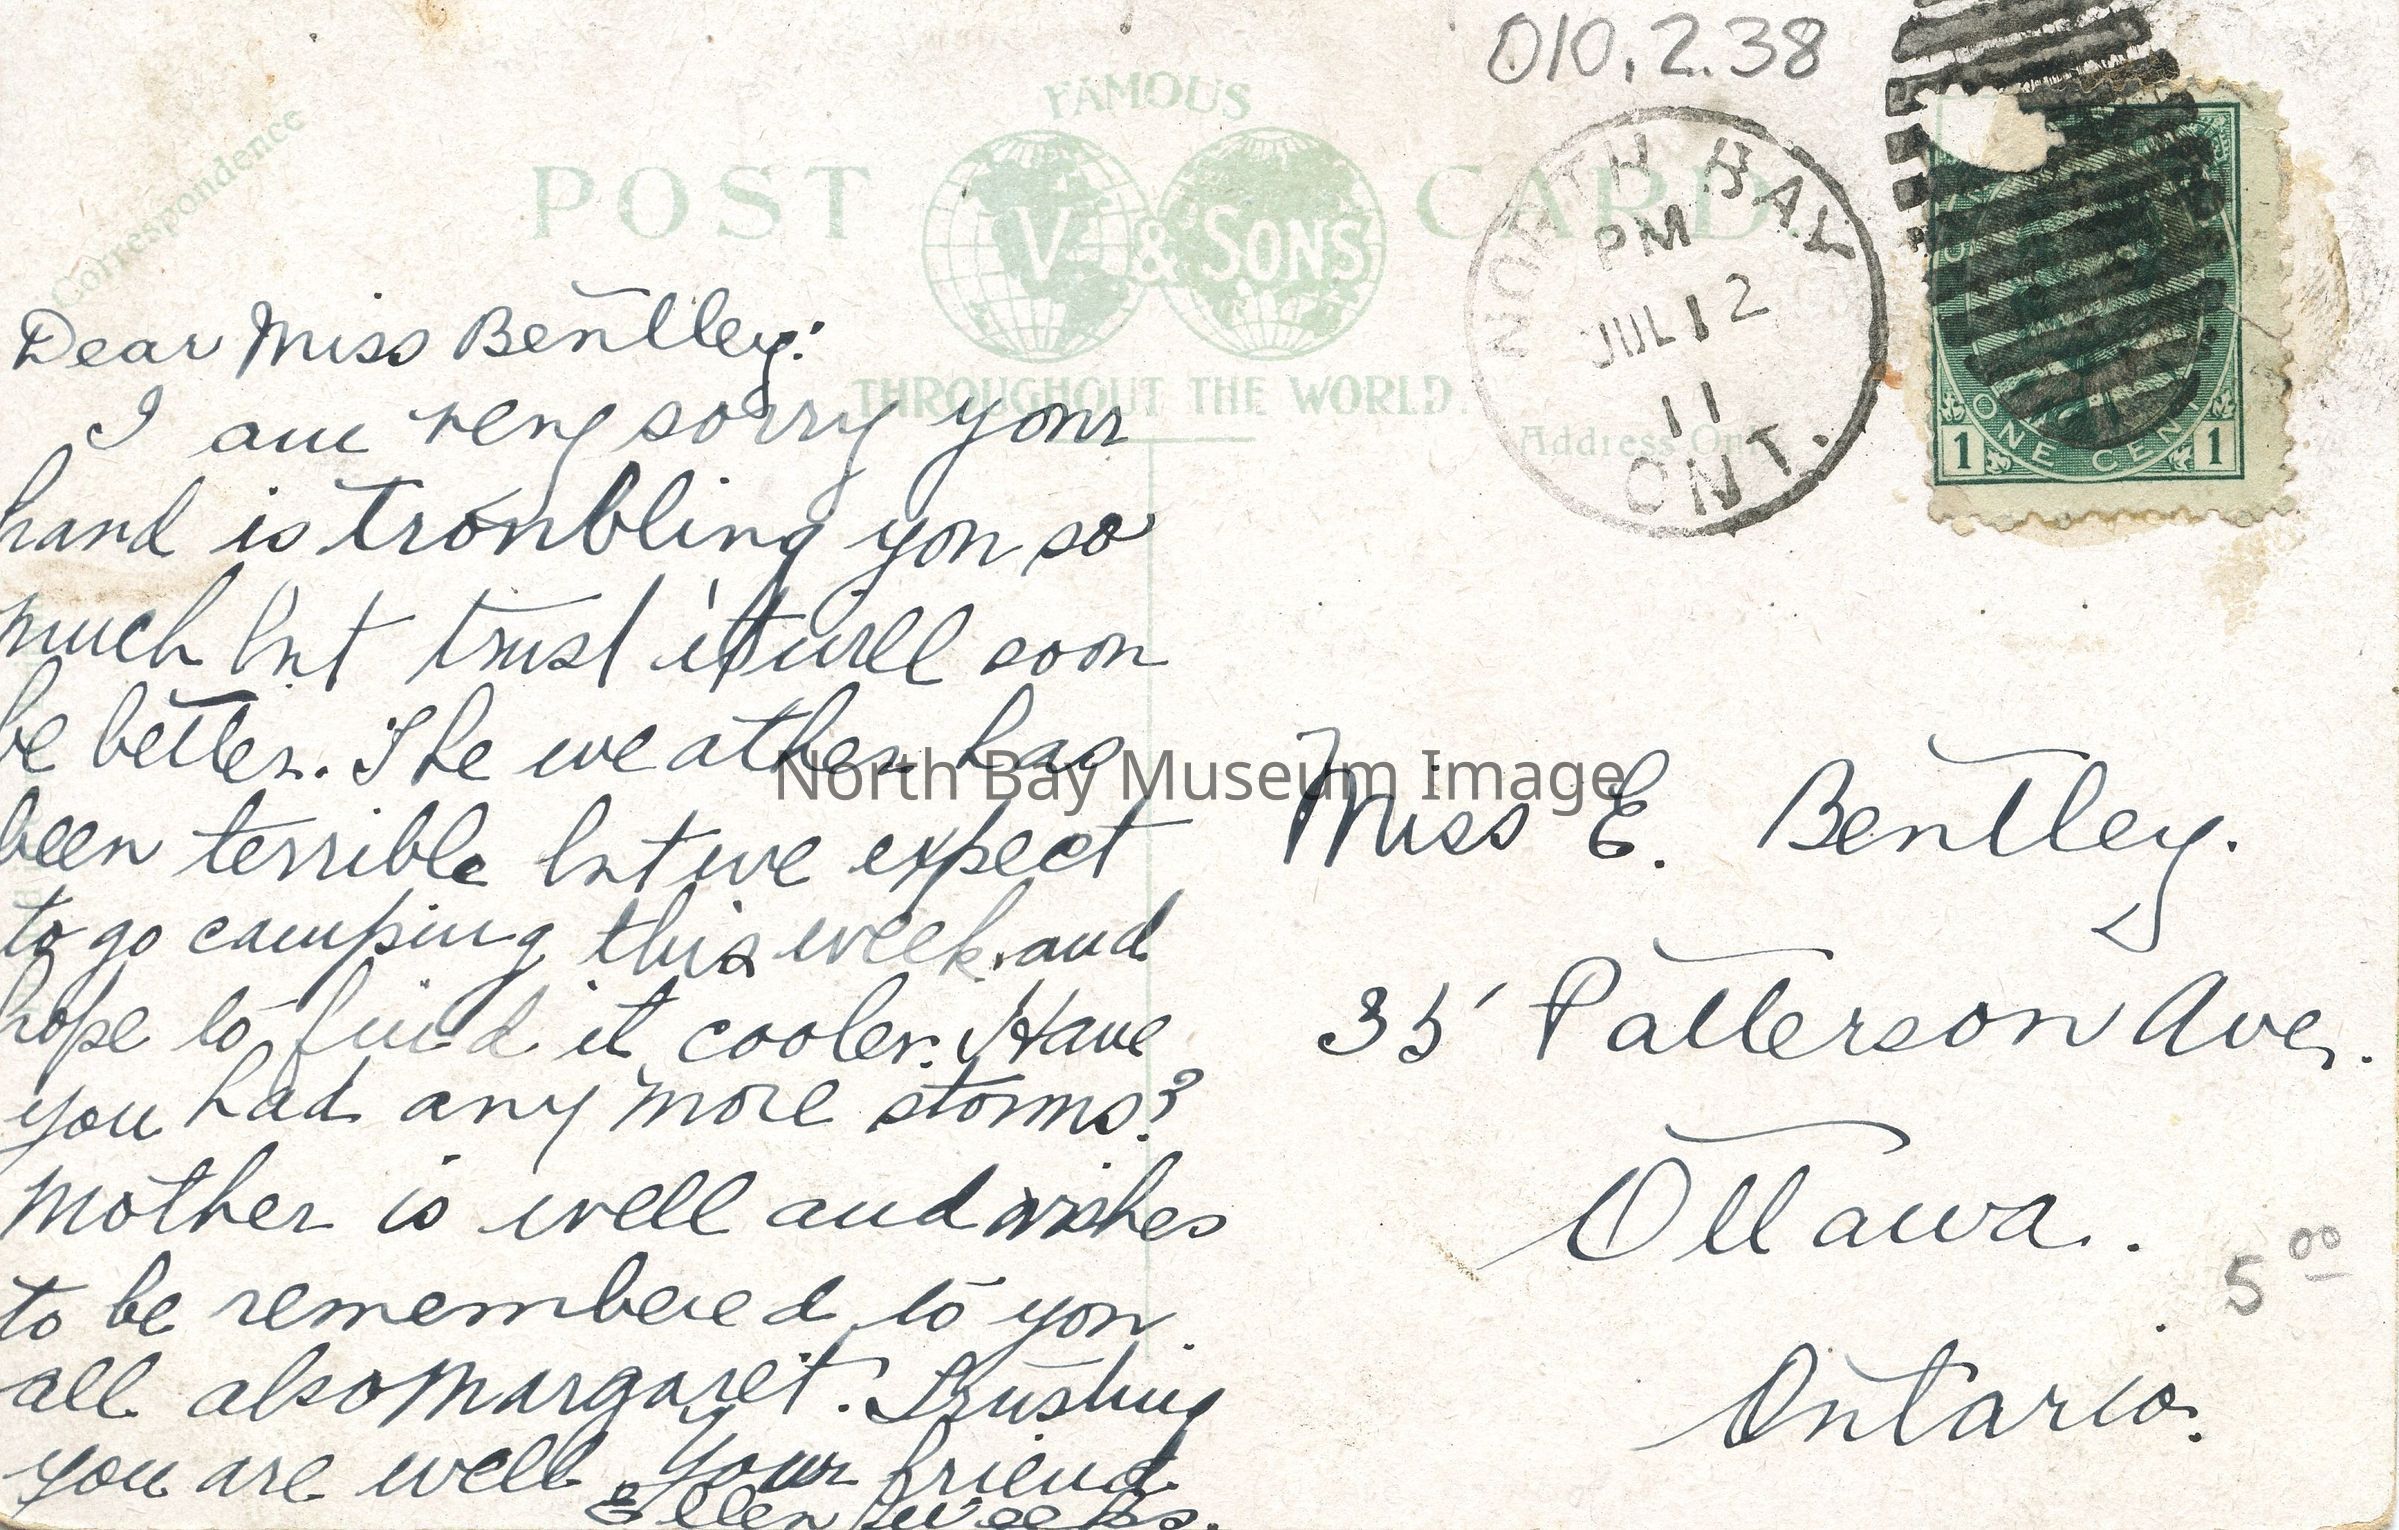 010.2.38
FAMOUS
POST CARD
V & SONS
THROUGHOUT THE WORLD.
Correspondence
Address Only
NORTH BAY
PM
JUL 12
11
ONT.
ONE CENT
1 1
Dear Miss Bentley:
I am very sorry your
hand is troubling you so
much but trust it will soon
be better. The weather has
been terrible but we expect
to go camping this week and
hope to find it cooler. Have
you had any more storms?
Mother is well and wishes
to be remembered to you
all also Margaret. Trusting
you are well Your friend
Ellen Weeks.
Miss E. Bentley.
35 Patterson Ave.
Ottawa.
Ontario.
5 00
North Bay Museum Image